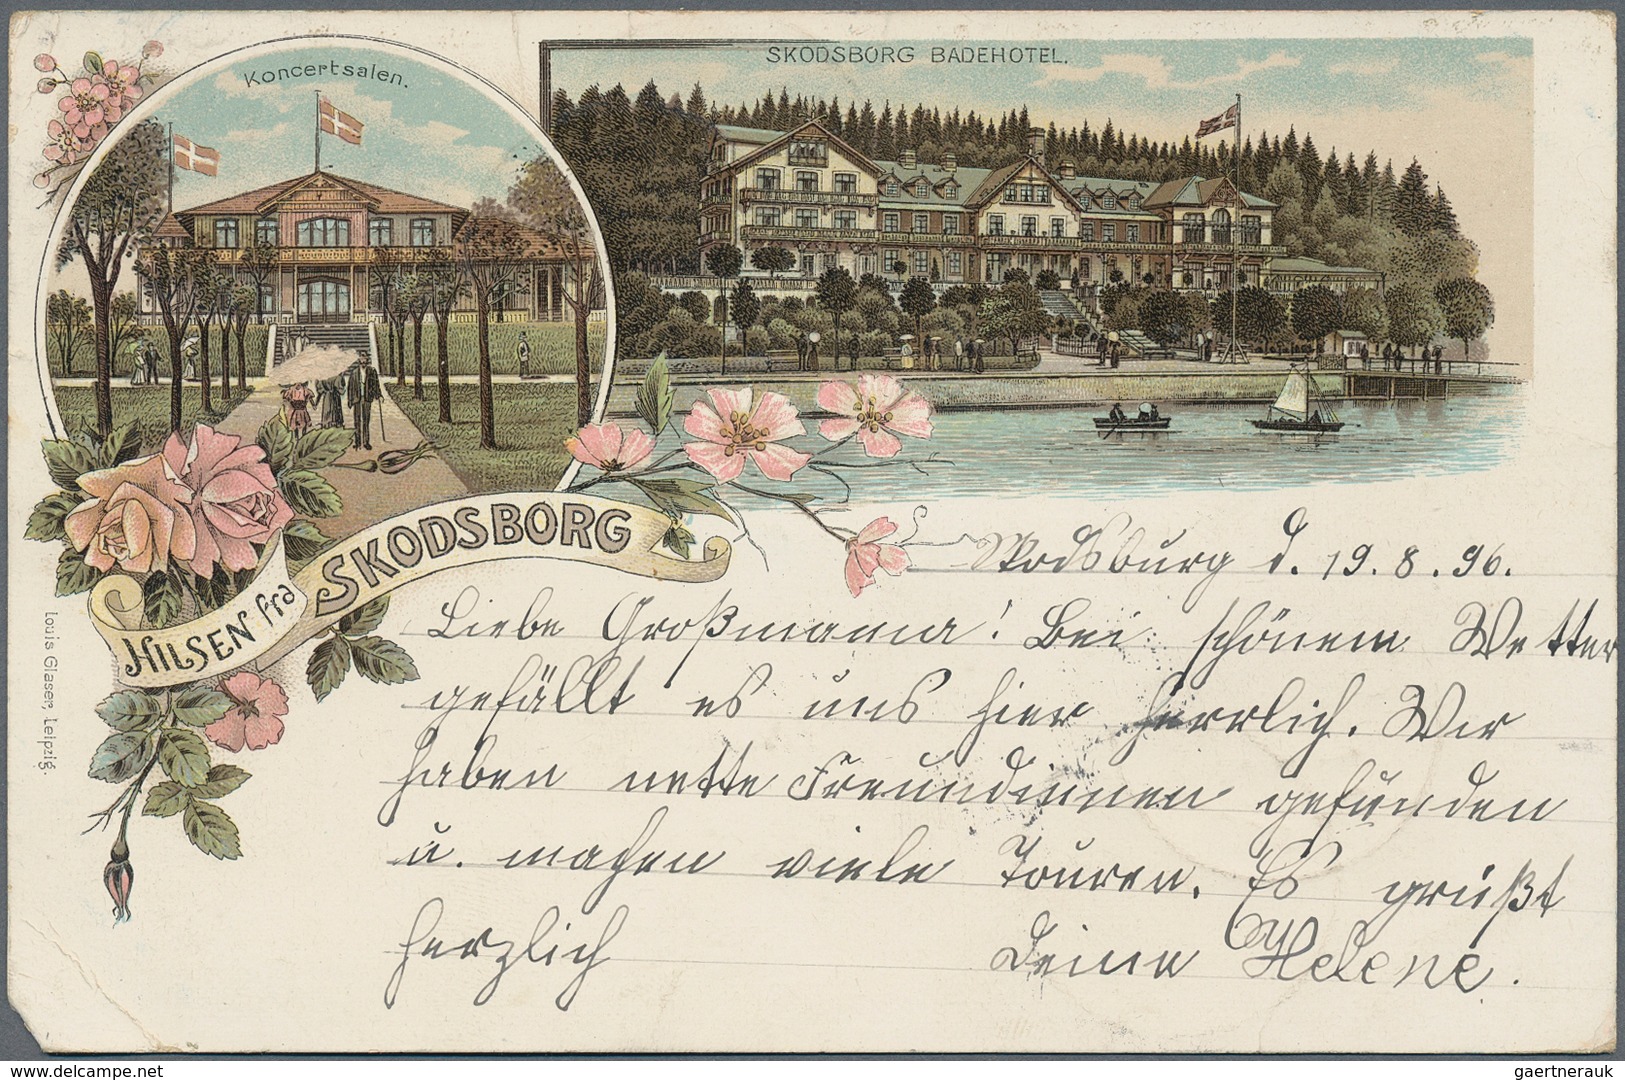 Koncertsalen.
SKODSBORG BADEHOTEL.
HILSEN fra SKODSBORG
Louis Glaser, Leipzig.
Skodsburg d. 19. 8. 96.
Liebe Großmama! Bei schönem Wetter
gefällt es uns hier herrlich. Wir
haben nette Freundinnen gefunden
u. machen viele Touren. Es grüßt
herzlich Deine Helene.
© www.delcampe.net
gaertnerauk